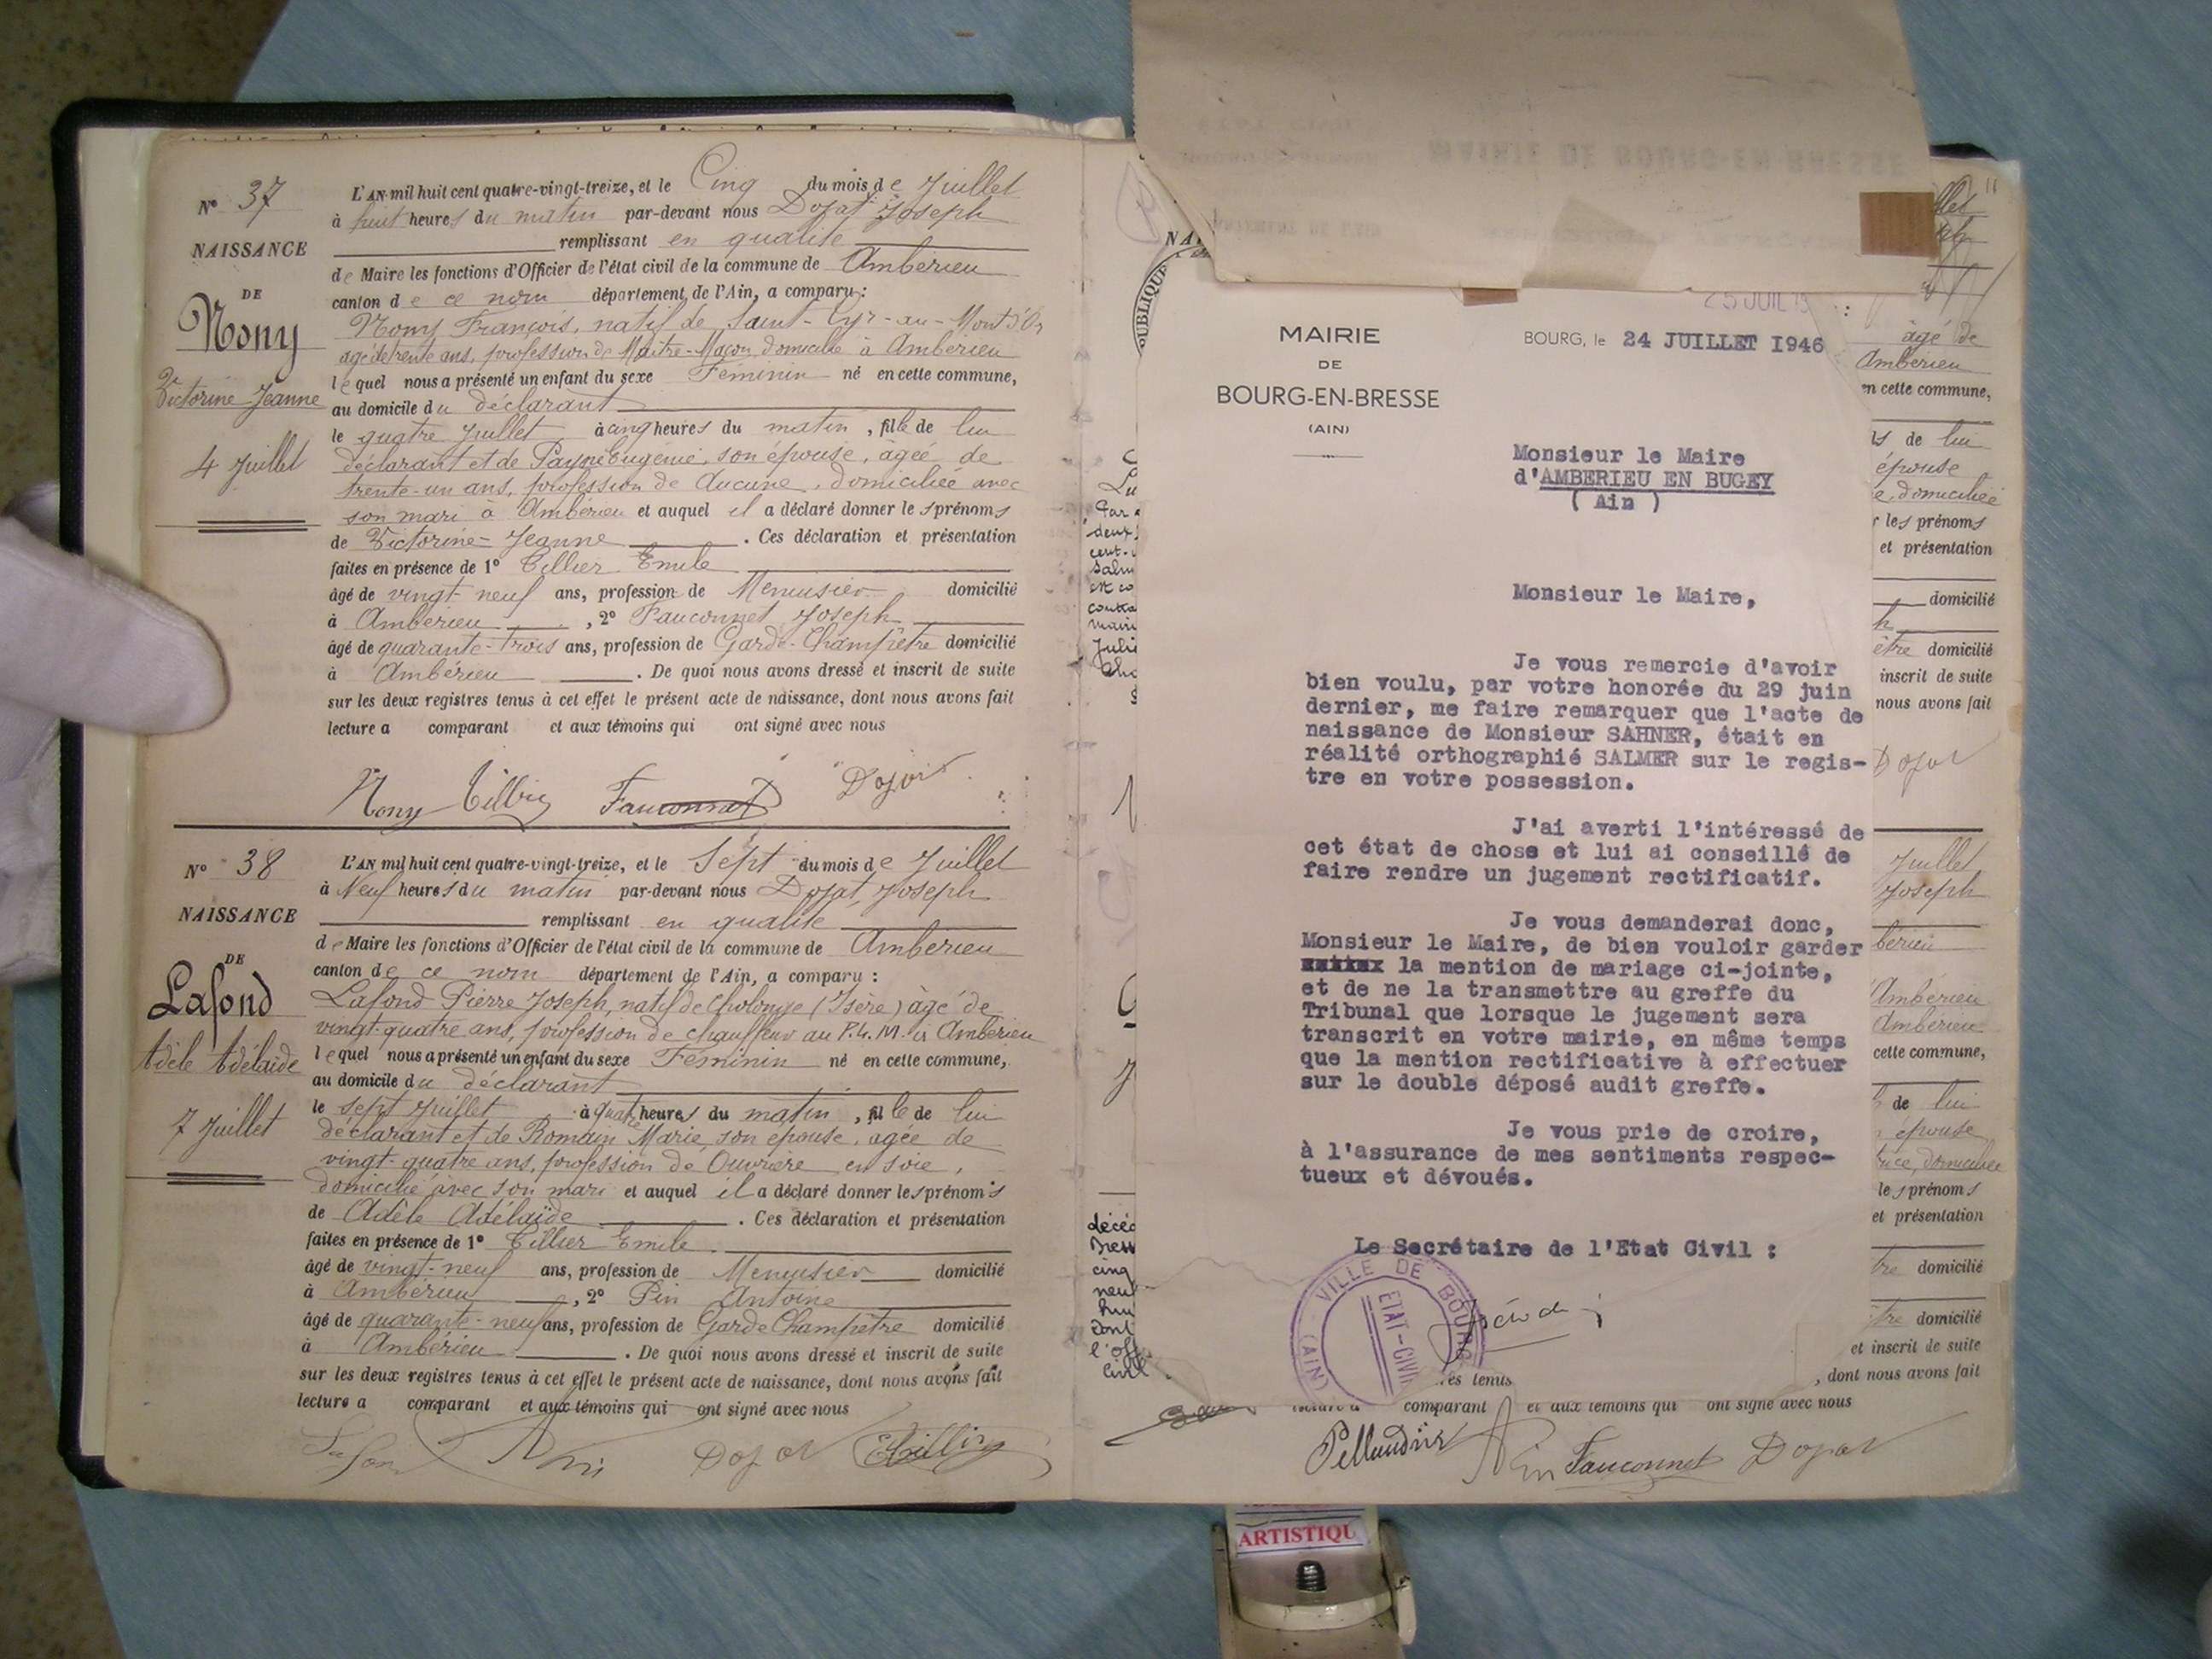 N° 37
NAISSANCE
DE
Nony
Victorine-Jeanne
4 Juillet
L'AN mil huit cent quatre-vingt-treize, et le Cinq du mois de Juillet
à huit heures du matin par-devant nous Dojat Joseph
remplissant en qualité
de Maire les fonctions d'Officier de l'état civil de la commune de Ambérieu
canton de ce nom département de l'Ain, a comparu :
Nony François, natif de Saint-Cyr-au-Mont d'Or
agé de trente ans, profession de Maître-Maçon domicilié à Ambérieu
lequel nous a présenté un enfant du sexe Féminin né en cette commune,
au domicile du déclarant
le quatre Juillet à cinq heures du matin, fille de lui
déclarant et de Payne Eugénie, son épouse, agée de
trente-un ans, profession de Aucune, domiciliée avec
son mari à Ambérieu et auquel il a déclaré donner les prénoms
de Victorine-Jeanne . Ces déclaration et présentation
faites en présence de 1° Tillier Emile
âgé de vingt-neuf ans, profession de Menuisier domicilié
à Ambérieu , 2° Fauconnet Joseph
âgé de quarante-trois ans, profession de Garde-Champêtre domicilié
à Ambérieu . De quoi nous avons dressé et inscrit de suite
sur les deux registres tenus à cet effet le présent acte de naissance, dont nous avons fait
lecture a comparant et aux témoins qui ont signé avec nous
Nony Tillier Fauconnet Dojat
N° 38
NAISSANCE
DE
Lafond
Adèle Adélaïde
7 Juillet
L'AN mil huit cent quatre-vingt-treize, et le Sept du mois de Juillet
à Neuf heures du matin par-devant nous Dojat, Joseph
remplissant en qualité
de Maire les fonctions d'Officier de l'état civil de la commune de Ambérieu
canton de ce nom département de l'Ain, a comparu :
Lafond Pierre Joseph, natif de Cholonge (Isère) âgé de
vingt-quatre ans, profession de chauffeur au P.L.M. à Ambérieu
lequel nous a présenté un enfant du sexe Féminin né en cette commune,
au domicile du déclarant
le sept Juillet à quatre heures du matin, fille de lui
déclarant et de Romain Marie, son épouse, agée de
vingt-quatre ans, profession de Ouvrière en soie,
domicilié avec son mari et auquel il a déclaré donner les prénoms
de Adèle Adélaïde . Ces déclaration et présentation
faites en présence de 1° Tillier Emile
âgé de vingt-neuf ans, profession de Menuisier domicilié
à Ambérieu , 2° Pin Antoine
âgé de quarante-neuf ans, profession de Garde Champêtre domicilié
à Ambérieu . De quoi nous avons dressé et inscrit de suite
sur les deux registres tenus à cet effet le présent acte de naissance, dont nous avons fait
lecture a comparant et aux témoins qui ont signé avec nous
Lafond Pin Dojat Tillier
MAIRIE
DE
BOURG-EN-BRESSE
(AIN)
BOURG, le 24 JUILLET 1946
Monsieur le Maire
d'AMBERIEU EN BUGEY
( Ain )
Monsieur le Maire,
Je vous remercie d'avoir
bien voulu, par votre honorée du 29 juin
dernier, me faire remarquer que l'acte de
naissance de Monsieur SAHNER, était en
réalité orthographié SALMER sur le regis-
tre en votre possession.
J'ai averti l'intéressé de
cet état de chose et lui ai conseillé de
faire rendre un jugement rectificatif.
Je vous demanderai donc,
Monsieur le Maire, de bien vouloir garder
la mention de mariage ci-jointe,
et de ne la transmettre au greffe du
Tribunal que lorsque le jugement sera
transcrit en votre mairie, en même temps
que la mention rectificative à effectuer
sur le double déposé audit greffe.
Je vous prie de croire,
à l'assurance de mes sentiments respec-
tueux et dévoués.
Le Secrétaire de l'Etat Civil :
VILLE DE BOURG (AIN)
ETAT-CIVIL
âgé de
Ambérieu
en cette commune,
de lui
épouse
domiciliée
les prénoms
et présentation
domicilié
domicilié
inscrit de suite
nous avons fait
Dojat
Juillet
Joseph
Ambérieu
Ambérieu
cette commune,
de lui
épouse
les prénoms
et présentation
domicilié
domicilié
et inscrit de suite
tenus , dont nous avons fait
comparant et aux témoins qui ont signé avec nous
Pin Fauconnet Dojat
ARTISTIQU